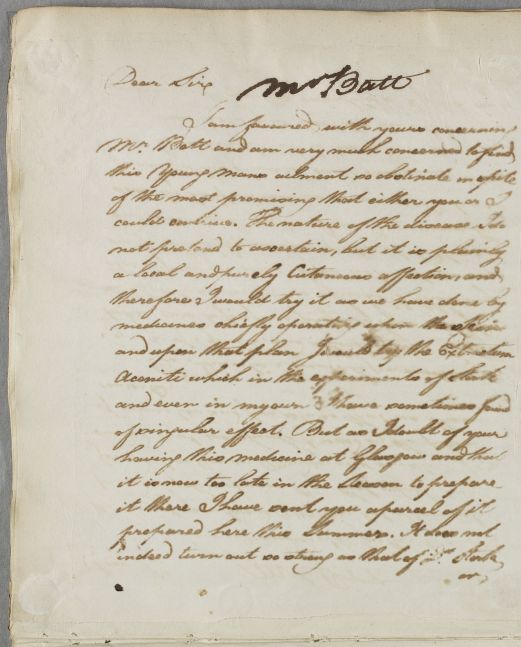 Dear Sir,
Mr Batt
I am favoured with yours concerning
Mr. Batt and am very much concerned to find
this Young mans ailment so obstinate in spite
of the most promising that either you or I
could contrive. The nature of the disease I do
not pretend to ascertain, but it is plainly
a local and purely Cutaneous affection, and
therefore I would try it as we have done by
medicines chiefly operating upon the Skin
and upon that plan I would try the Extractum
Aconiti which in the experiments of Stork
and even in my own I have sometimes found
of singular effect. But as I doubt of your
having this medicine at Glasgow and that
it is now too late in the Season to prepare
it there I have sent you a parcel of it
prepared here this Summer. It does not
indeed turn out so strong as that of Dr. Stork
or,